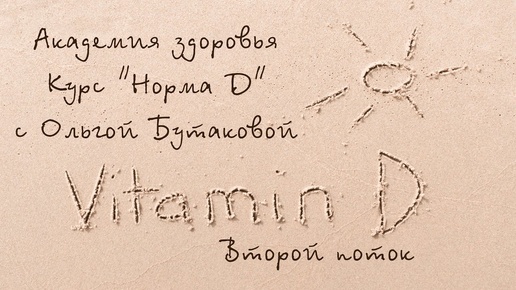 Академия здоровья
Курс "Норма D"
с Ольгой Бутаковой
Vitamin D
Второй поток